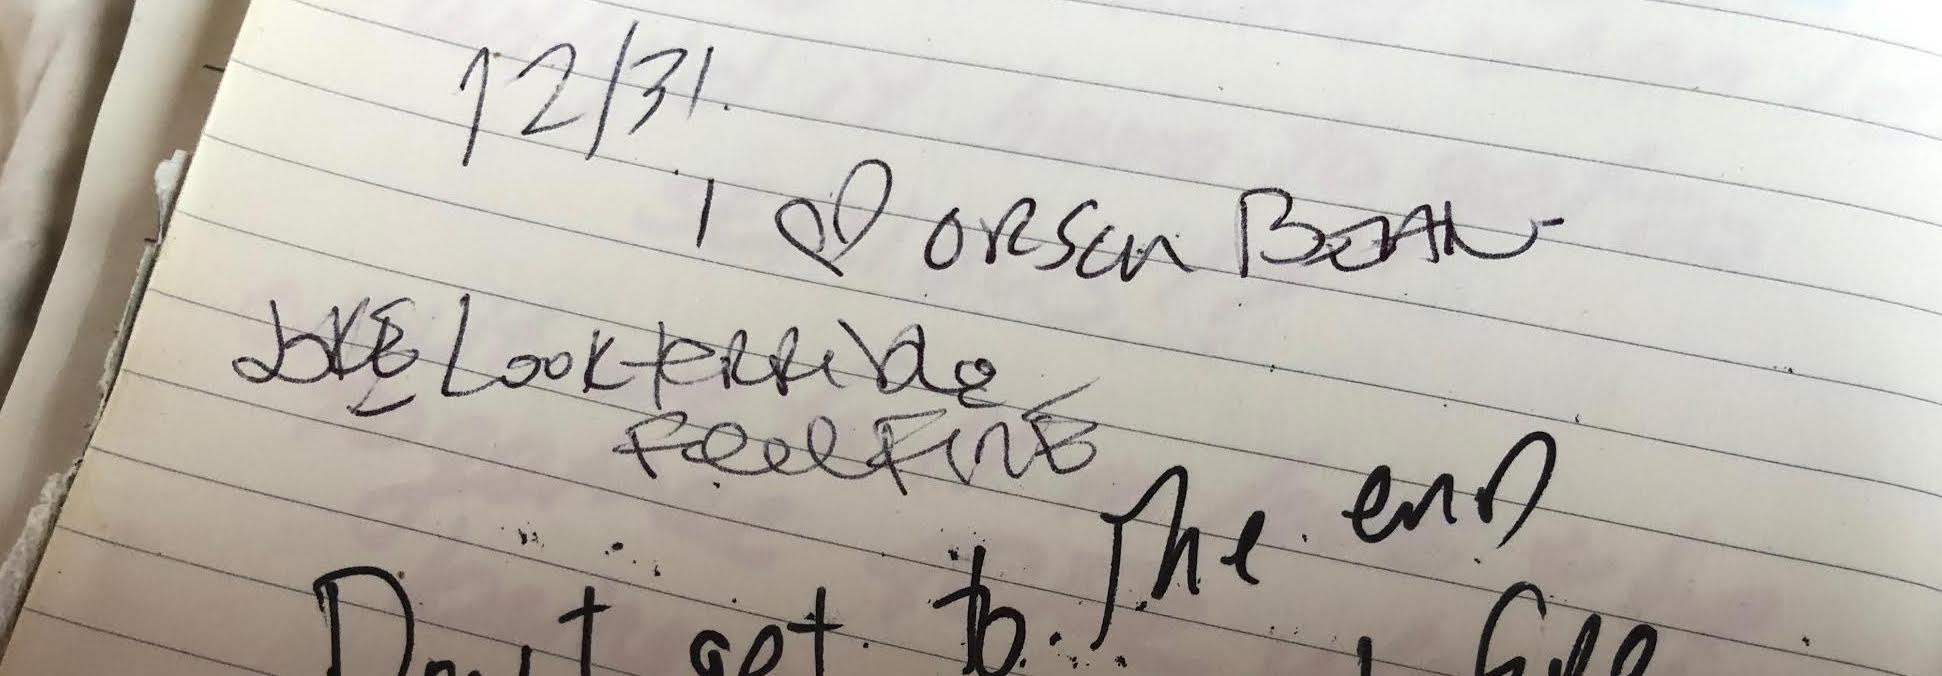 12/31.
I ♡ ORSON BEAN
JOKE Look terrible
Feel FINE
The end
Don't get to